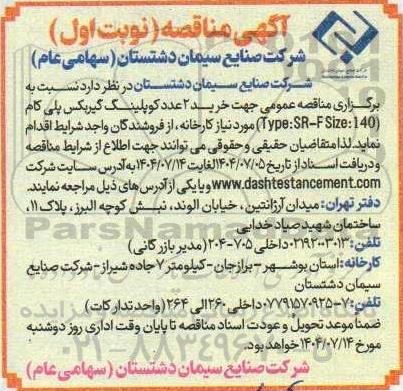 آگهی مناقصه (نوبت اول)
شرکت صنایع سیمان دشتستان (سهامی عام)
شرکت صنایع سیمان دشتستان در نظر دارد نسبت به
برگزاری مناقصه عمومی جهت خرید ۲ عدد کوپلینگ گیربکس پلی کام
(Type:SR-F Size:140) مورد نیاز کارخانه ، از فروشندگان واجد شرایط اقدام
نماید. لذا متقاضیان حقیقی و حقوقی می توانند جهت اطلاع از شرایط مناقصه
و دریافت اسناد از تاریخ ۱۴۰۴/۰۷/۰۵ لغایت ۱۴۰۴/۰۷/۱۴ به آدرس سایت شرکت
www.dashtestancement.com و یا یکی از آدرس های ذیل مراجعه نمایند.
دفتر تهران: میدان آرژانتین ، خیابان الوند، نبش کوچه البرز ، پلاک ۱۱،
ساختمان شهید صیاد خدایی
تلفن: ۰۲۱۹۲۰۰۳۰۱۳ داخلی ۷۰۵-۲۰۴ (مدیر بازرگانی)
کارخانه: استان بوشهر - برازجان - کیلومتر ۷ جاده شیراز - شرکت صنایع
سیمان دشتستان
تلفن: ۷-۰۷۷۹۱۵۷۰۹۲۵ داخلی ۲۶۰ الی ۲۶۴ (واحد تدارکات)
ضمنا موعد تحویل و عودت اسناد مناقصه تا پایان وقت اداری روز دوشنبه
مورخ ۱۴۰۴/۰۷/۱۴ خواهد بود.
شرکت صنایع سیمان دشتستان (سهامی عام)